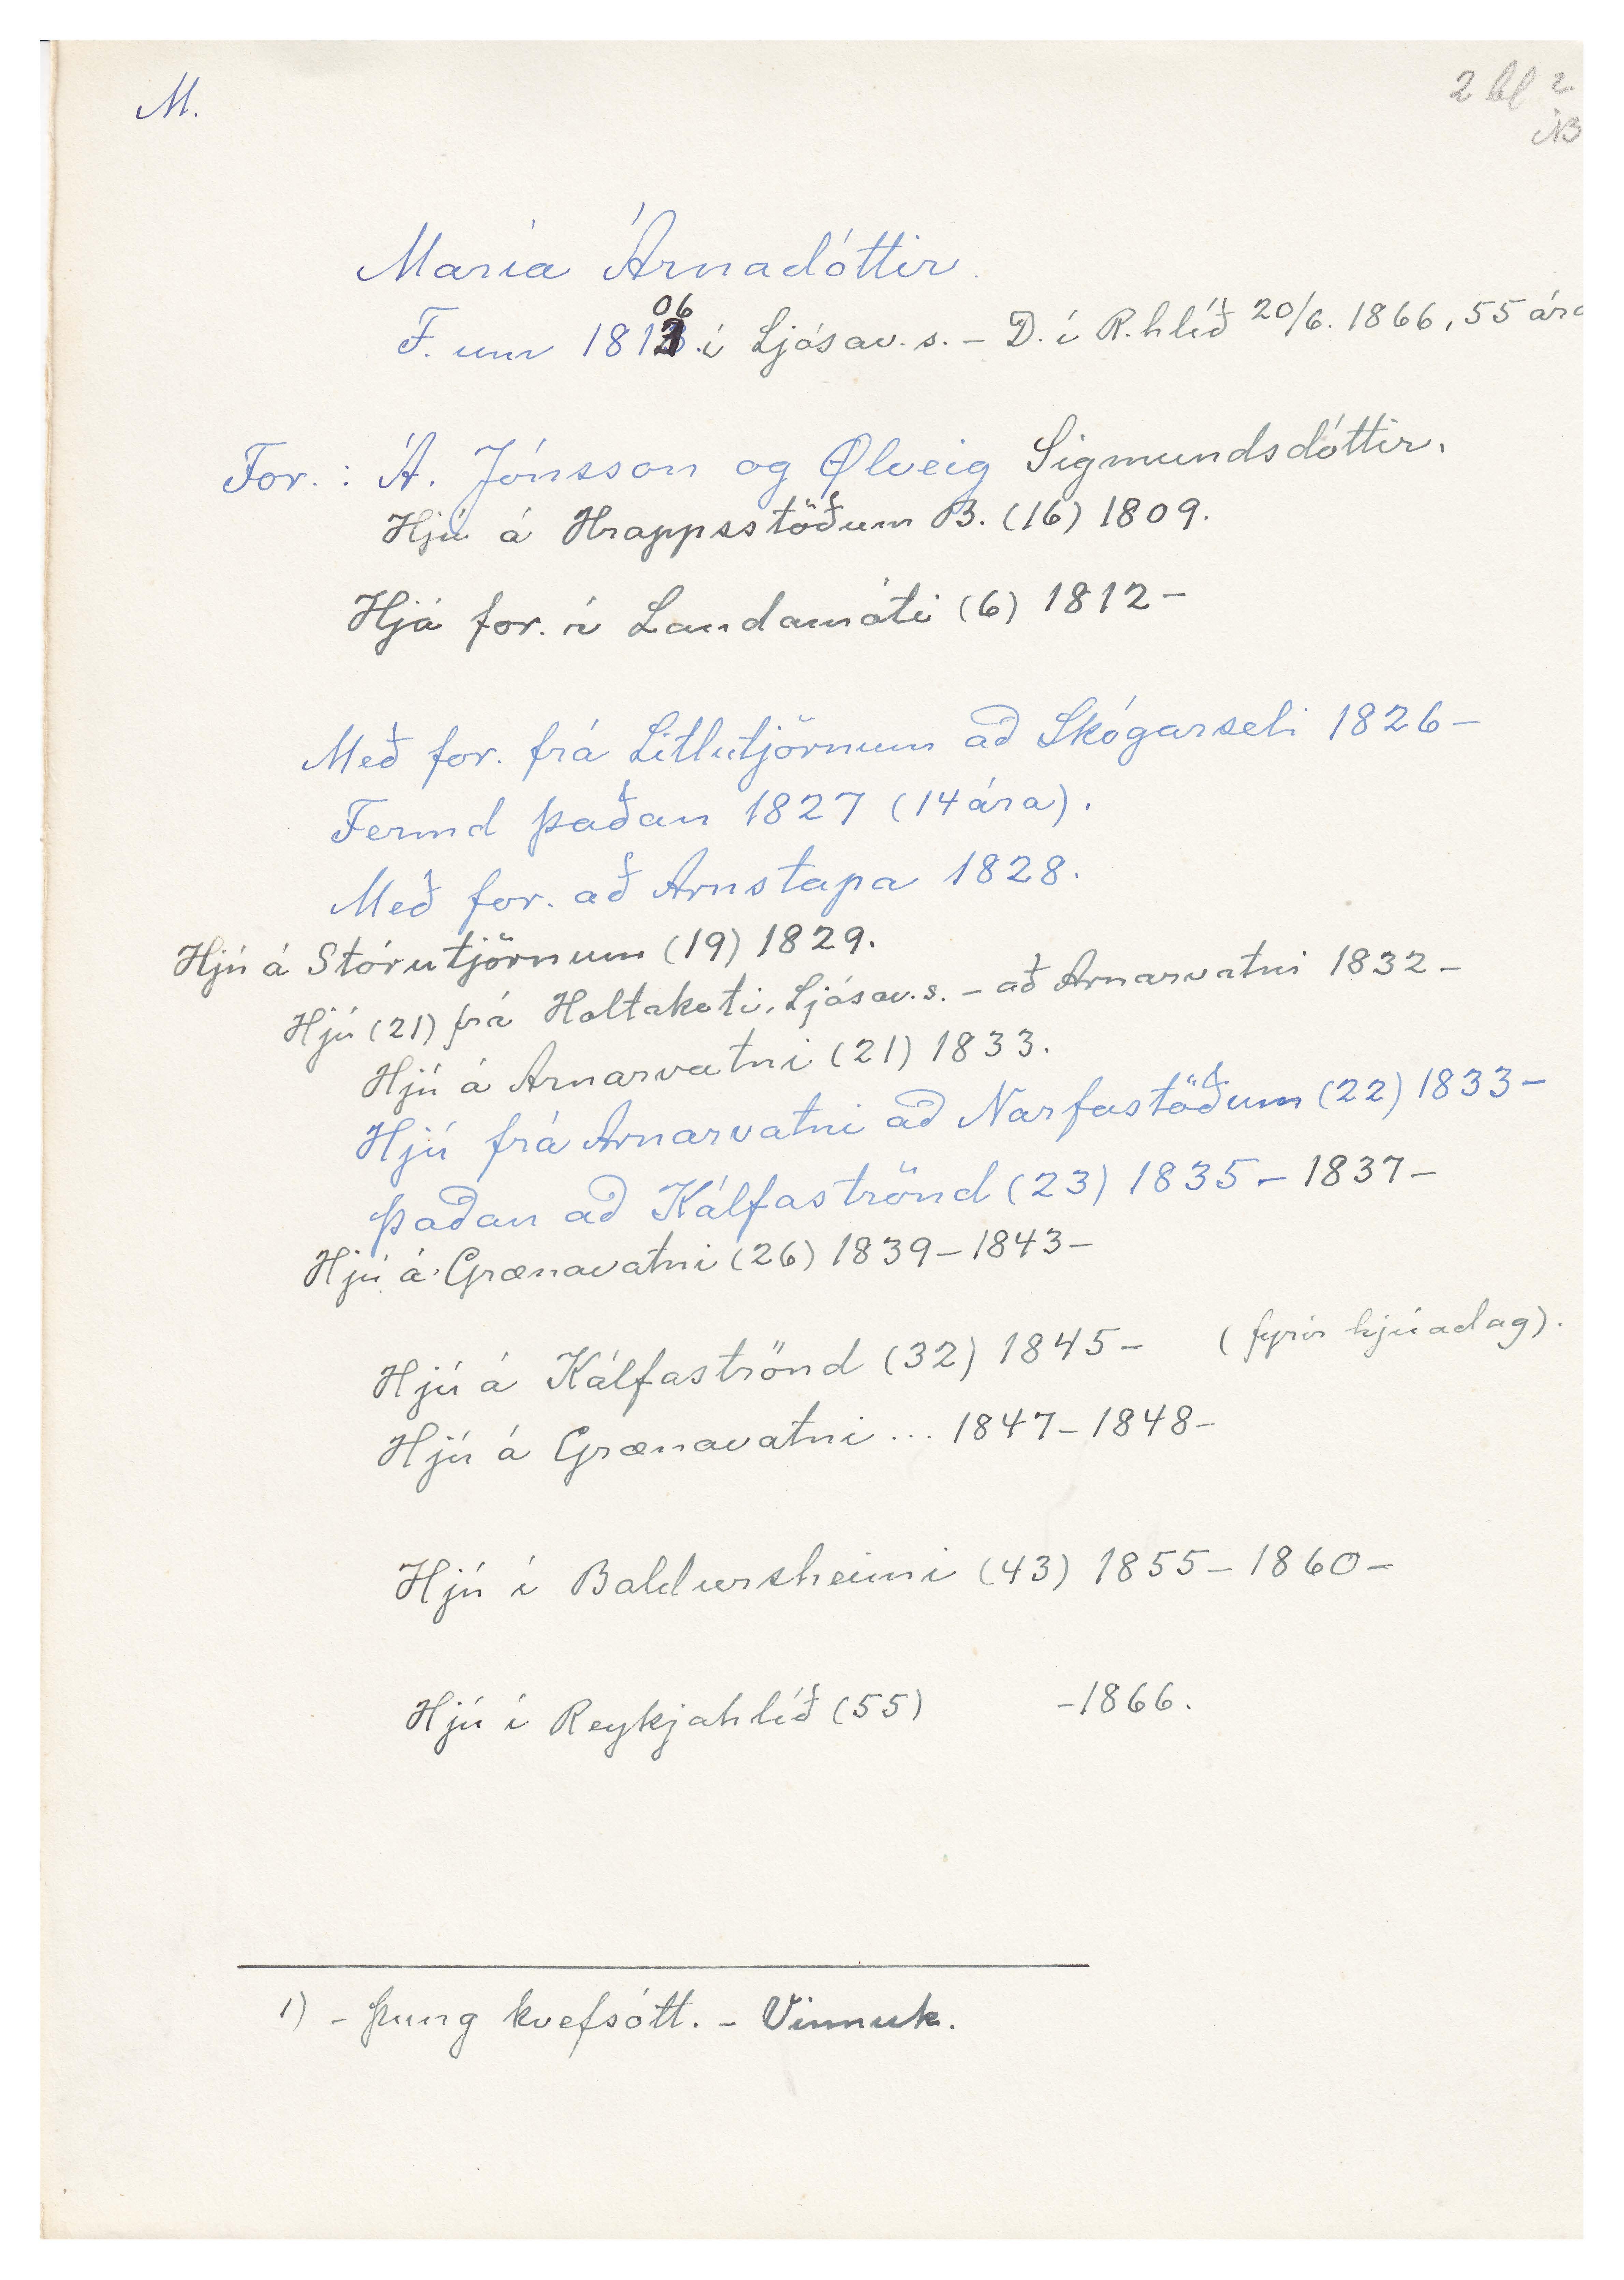 M.
2 bl 2
NB
María Árnadóttir.
06
F. um 1812 í Ljósav.s. – D. í R.hlíð 20/6. 1866, 55 ára
For.: Á. Jónsson og Ølveig Sigmundsdóttir.
Hjú á Hrappsstöðum B. (16) 1809.
Hjá for. í Landamóti (6) 1812 –
Með for. frá Litlutjörnum að Skógarseli 1826 –
Fermd þaðan 1827 (14 ára).
Með for. að Arnstapa 1828.
Hjú á Stórutjörnum (19) 1829.
Hjú (21) frá Holtakoti, Ljósav.s. – að Arnarvatni 1832 –
Hjú á Arnarvatni (21) 1833.
Hjú frá Arnarvatni að Narfastöðum (22) 1833 –
þaðan að Kálfaströnd (23) 1835 – 1837 –
Hjú á Grænavatni (26) 1839 – 1843 –
Hjú á Kálfaströnd (32) 1845 – (fyrir hjúadag).
Hjú á Grænavatni ... 1847 – 1848 –
Hjú í Baldursheimi (43) 1855 – 1860 –
Hjú í Reykjahlíð (55) – 1866.
1) – Þung kvefsótt. – Vinnuk.